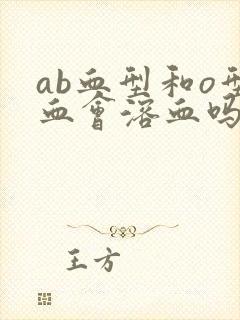 ab血型和o型
血會溶血吗
王方